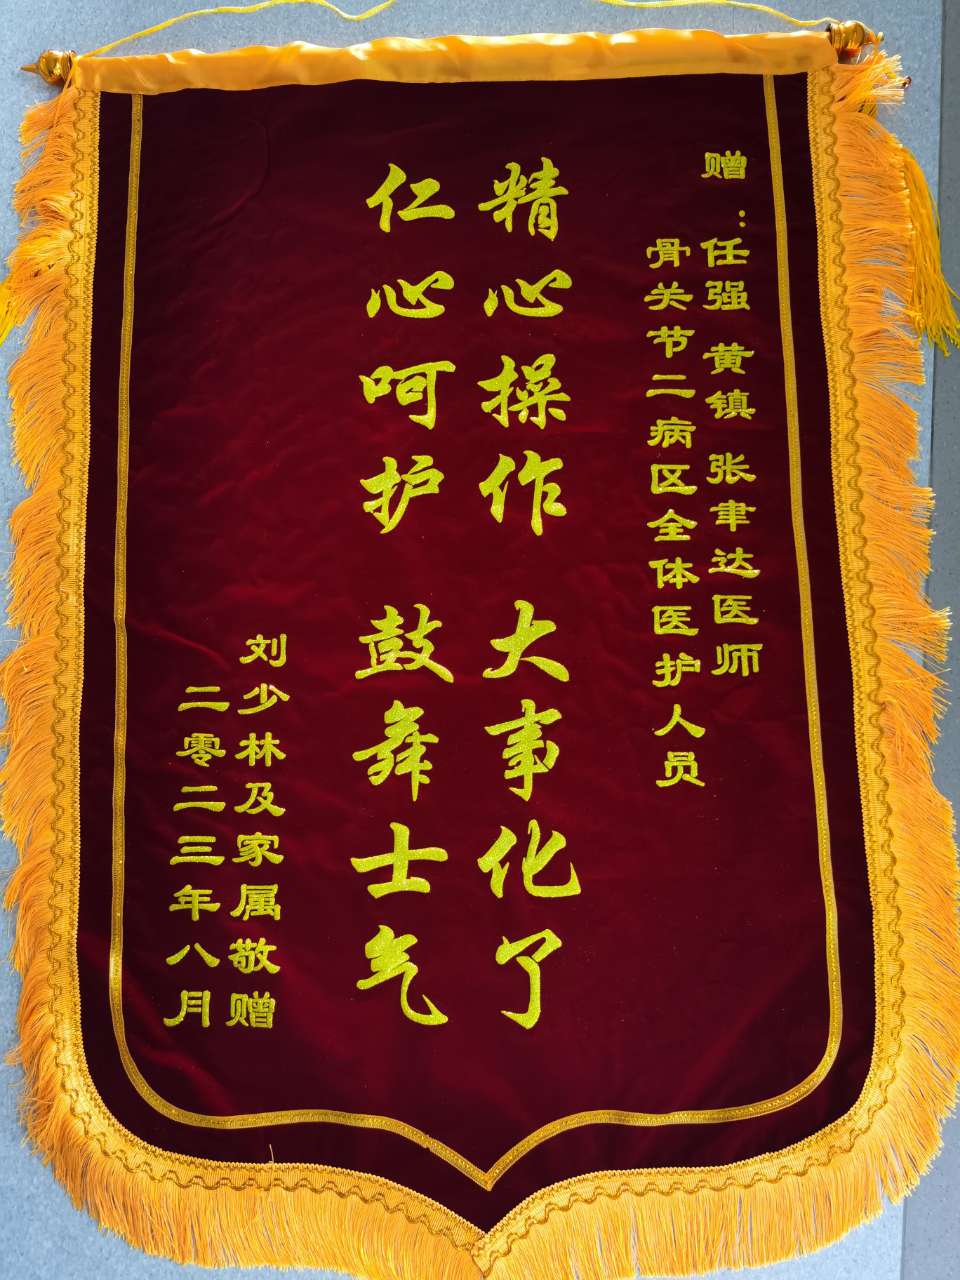 赠：任强 黄镇 张聿达医师
骨关节二病区全体医护人员
精心操作 大事化了
仁心呵护 鼓舞士气
刘少林及家属敬赠
二零二三年八月